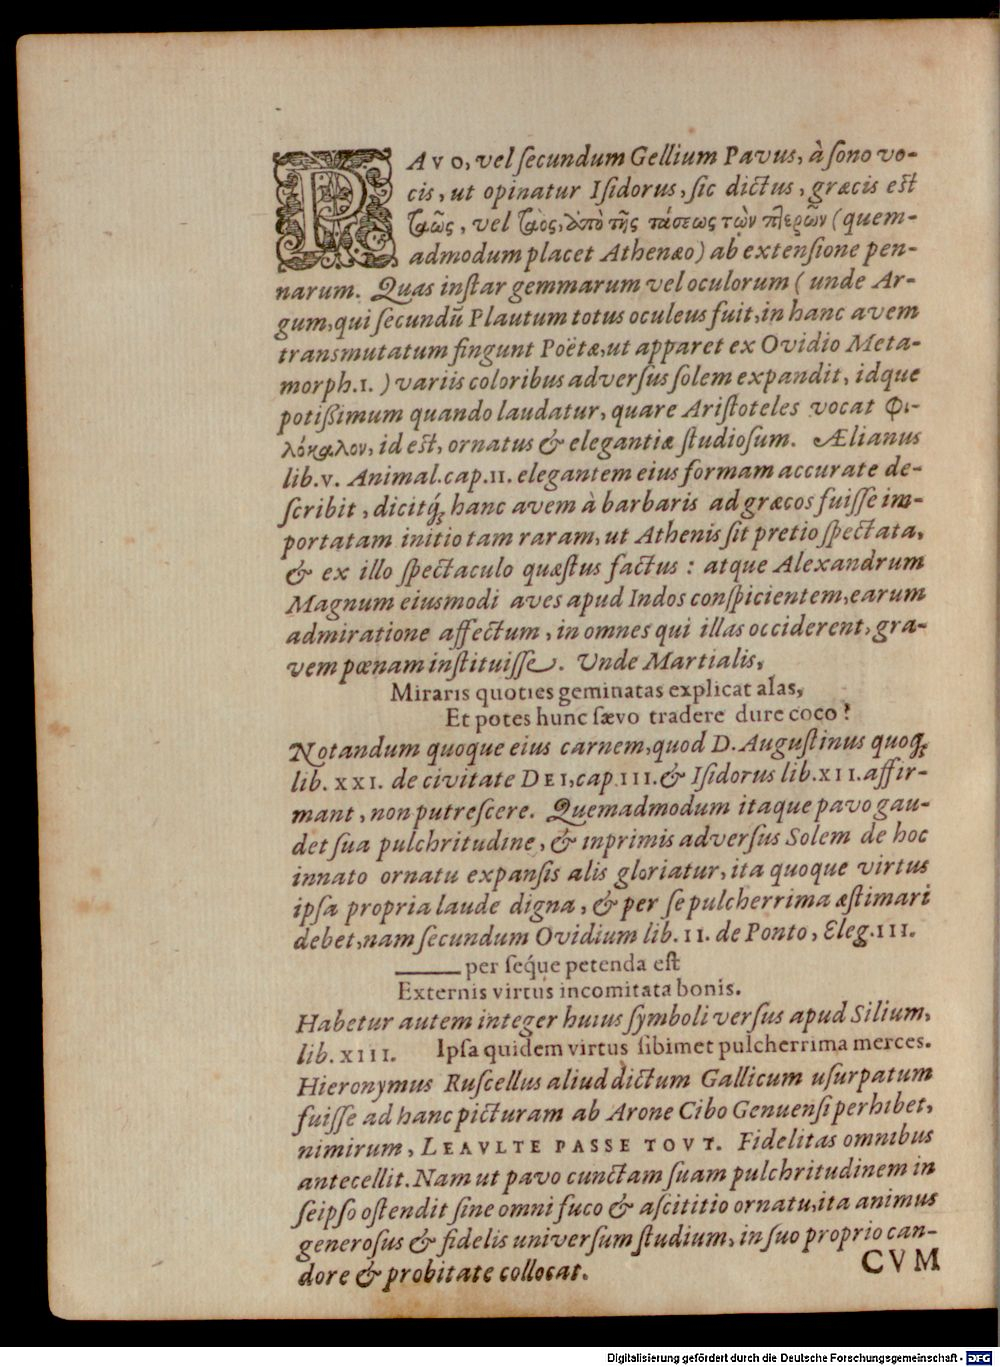 PAVO, vel ſecundum Gellium Pavus, à ſono vo-
cis, ut opinatur Iſidorus, ſic dictus, græcis eſt
ταῶς, vel ταὸς, ἀπὸ τῆς τάσεως τῶν πτερῶν (quem-
admodum placet Athenæo) ab extenſione pen-
narum. Quas inſtar gemmarum vel oculorum (unde Ar-
gum, qui ſecundū Plautum totus oculeus fuit, in hanc avem
transmutatum fingunt Poëtæ, ut apparet ex Ovidio Meta-
morph. I.) variis coloribus adverſus ſolem expandit, idque
potiſſimum quando laudatur, quare Ariſtoteles vocat Φι-
λόκαλον, id eſt, ornatus & elegantiæ ſtudioſum. Ælianus
lib. V. Animal. cap. II. elegantem eius formam accurate de-
ſcribit, dicitq́; hanc avem à barbaris ad græcos fuiſſe im-
portatam initio tam raram, ut Athenis ſit pretio ſpectata,
& ex illo ſpectaculo quæſtus factus : atque Alexandrum
Magnum eiusmodi aves apud Indos conſpicientem, earum
admiratione affectum, in omnes qui illas occiderent, gra-
vem pœnam inſtituiſſe. Unde Martialis,
Miraris quoties geminatas explicat alas,
Et potes hunc ſævo tradere dure coco?
Notandum quoque eius carnem, quod D. Auguſtinus quoq;
lib. XXI. de civitate DEI, cap. III. & Iſidorus lib. XII. affir-
mant, non putreſcere. Quemadmodum itaque pavo gau-
det ſua pulchritudine, & inprimis adverſus Solem de hoc
innato ornatu expanſis alis gloriatur, ita quoque virtus
ipſa propria laude digna, & per ſe pulcherrima æſtimari
debet, nam ſecundum Ovidium lib. II. de Ponto, Eleg. III.
——— per ſeq́ue petenda eſt
Externis virtus incomitata bonis.
Habetur autem integer huius ſymboli verſus apud Silium,
lib. XIII. Ipſa quidem virtus ſibimet pulcherrima merces.
Hieronymus Ruſcellus aliud dictum Gallicum uſurpatum
fuiſſe ad hanc picturam ab Arone Cibo Genuenſi perhibet,
nimirum, LEAVLTE PASSE TOVT. Fidelitas omnibus
antecellit. Nam ut pavo cunctam ſuam pulchritudinem in
ſeipſo oſtendit ſine omni fuco & aſcititio ornatu, ita animus
generoſus & fidelis univerſum ſtudium, in ſuo proprio can-
dore & probitate collocat.
CVM
Digitalisierung gefördert durch die Deutsche Forschungsgemeinschaft - DFG